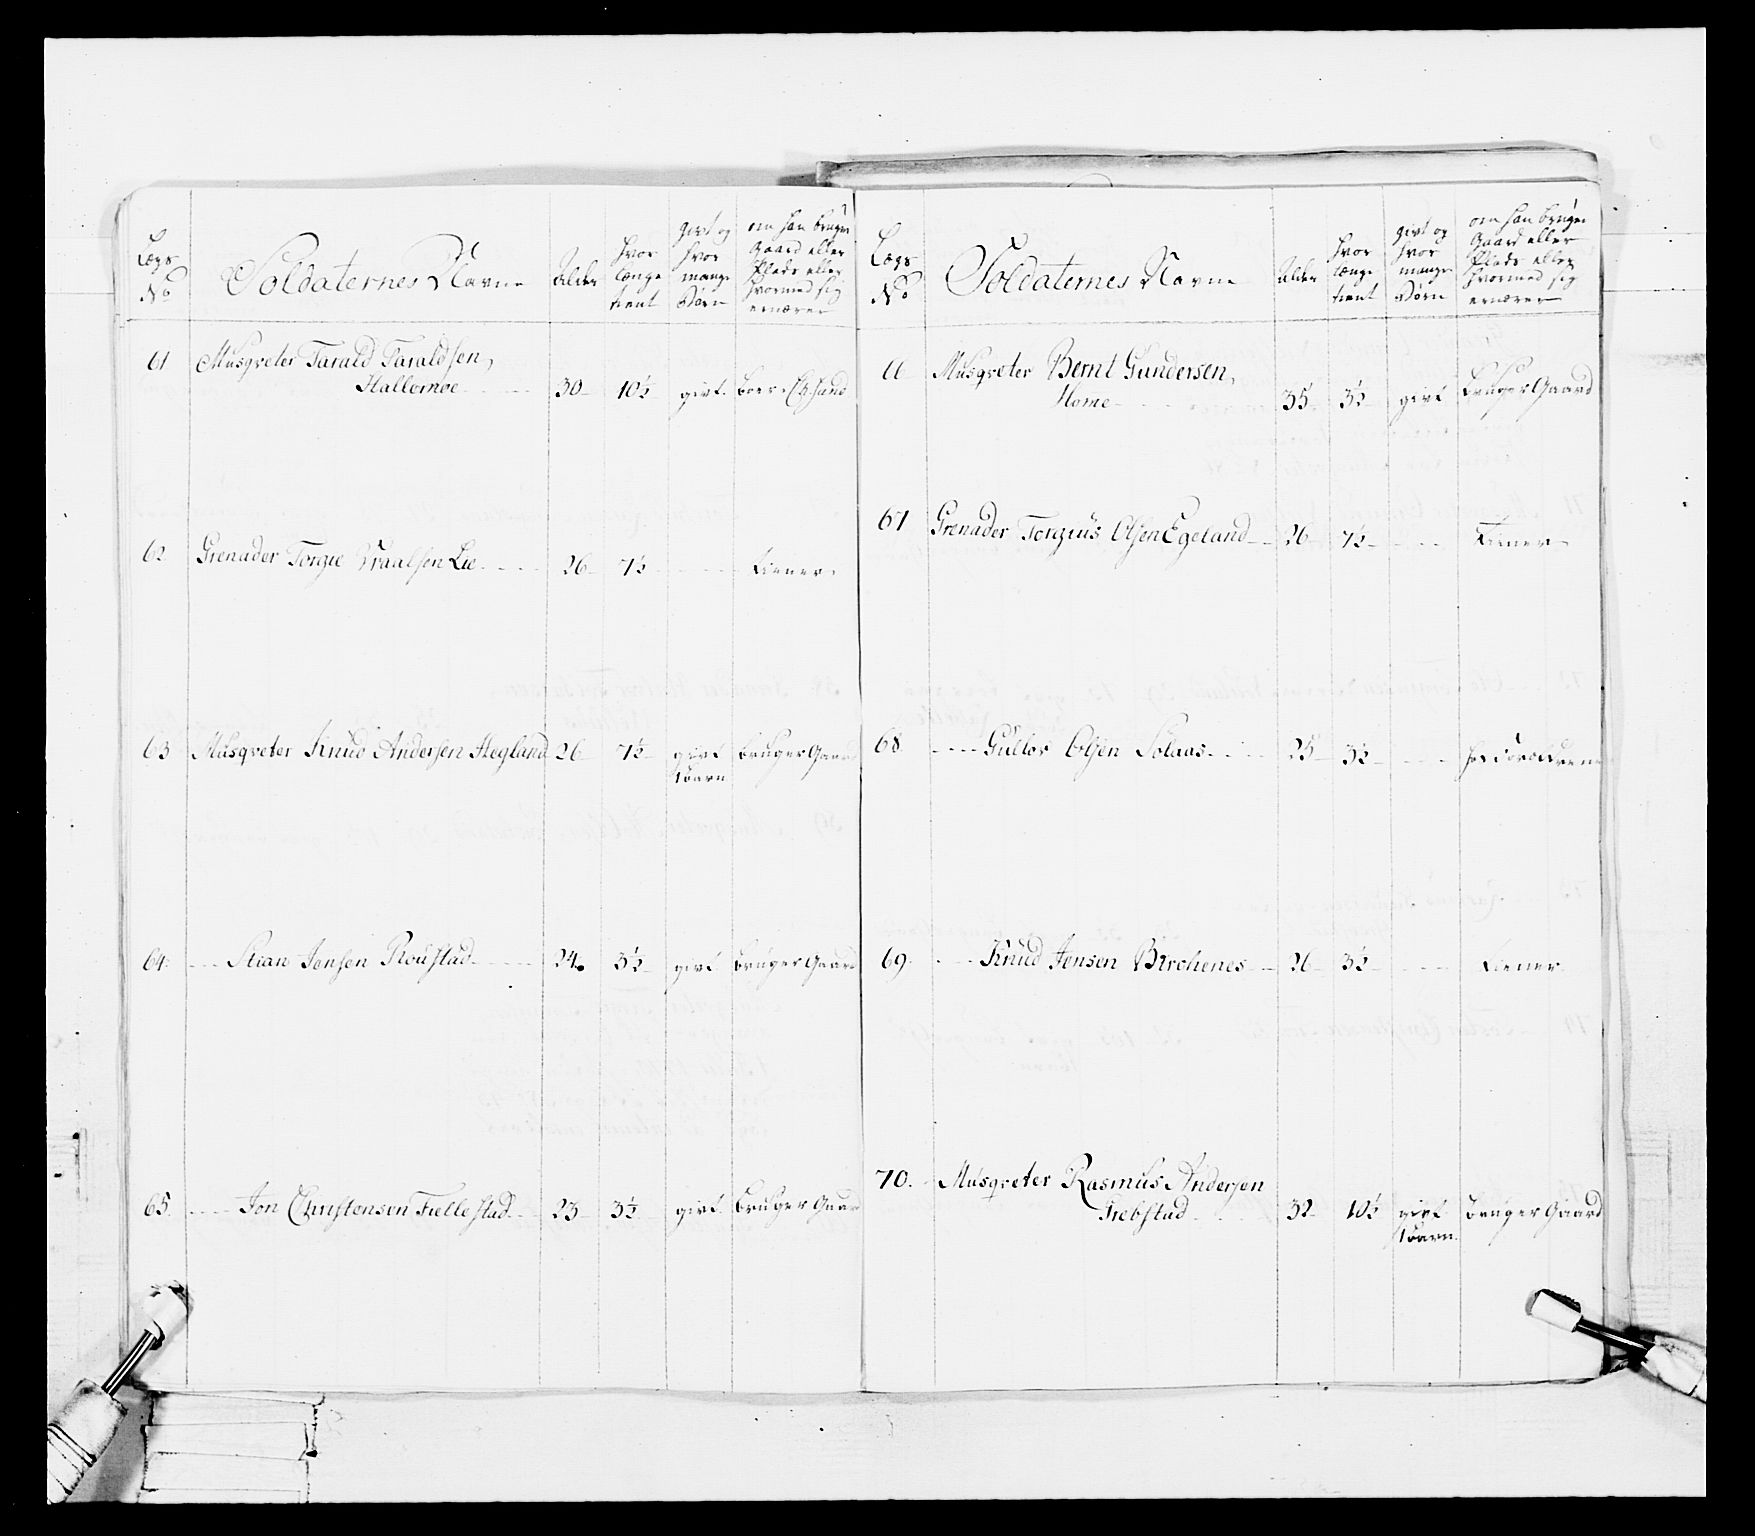 Lægs
No
Soldaternes Navne
Alder
hvor
længe
tient
givt og
hvor
mange
Børn
om han bruger
Gaard eller
Plads eller
hvormed sig
ernærer
61 Musqveter Tarald Taraldsen,
Hallomoe 30 10½ givt boer i Ch:sand
62 Grenader Torgie Vraalsen Lie 26 7½ Tiener
63 Musqveter Knud Andersen Hegland 26 7½ givt bruger Gaard
1 Barn
64 Stian Jensen Roustad 24 3½ givt bruger Gaard
65 Jon Christensen Fiellestad 23 3½ givt bruger Gaar
Lægs
No
Soldaternes Navne
Alder
hvor
længe
tient
givt og
hvor
mange
Børn
om han bruger
Gaard eller
Plads eller
hvormed sig
ernærer
66 Musqveter Bernt Gundersen,
Home 35 3½ givt bruger Gaard
67 Grenader Torgius Olsen Egeland 26 7½ Tiener
68 Gullov Olsen Solaas 25 3½ hos
69 Knud Jensen Birchenes 26 3½ Tiener
70. Musqveter Rasmus Andersen
Trebstad 32 10½ givt bruger Gaard
1 Barn